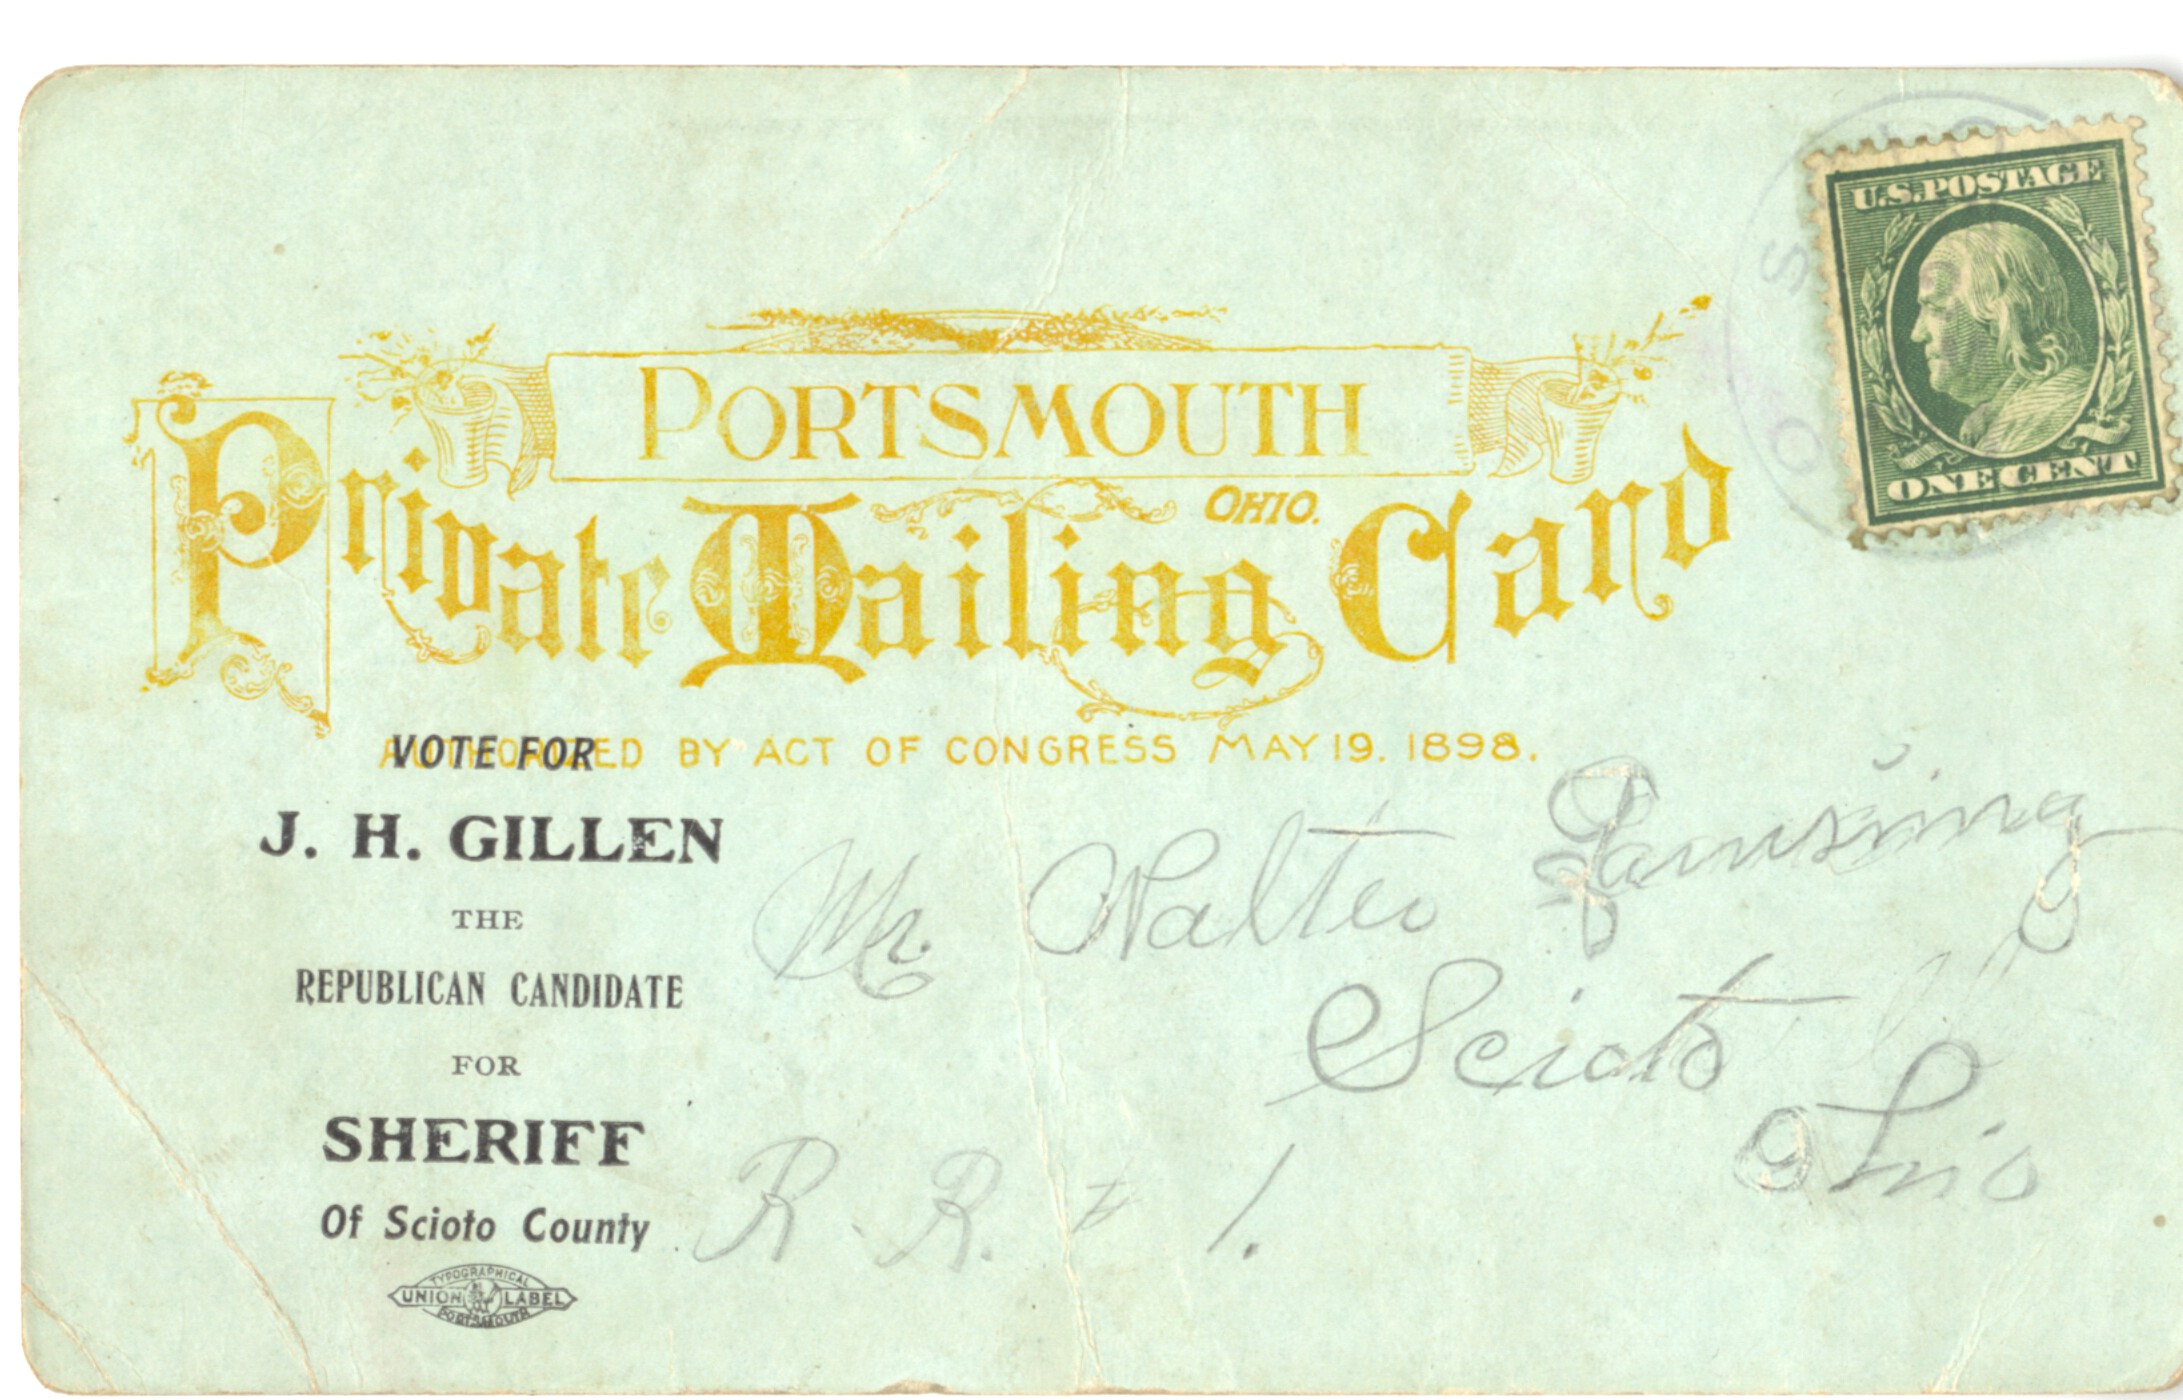 PORTSMOUTH
OHIO.
Private Mailing Card
AUTHORIZED BY ACT OF CONGRESS MAY 19. 1898.
U.S. POSTAGE
ONE CENT
VOTE FOR
J. H. GILLEN
THE
REPUBLICAN CANDIDATE
FOR
SHERIFF
Of Scioto County
TYPOGRAPHICAL
UNION LABEL
PORTSMOUTH
Mr. Walter
Scioto
Ohio
R. R. # 1.